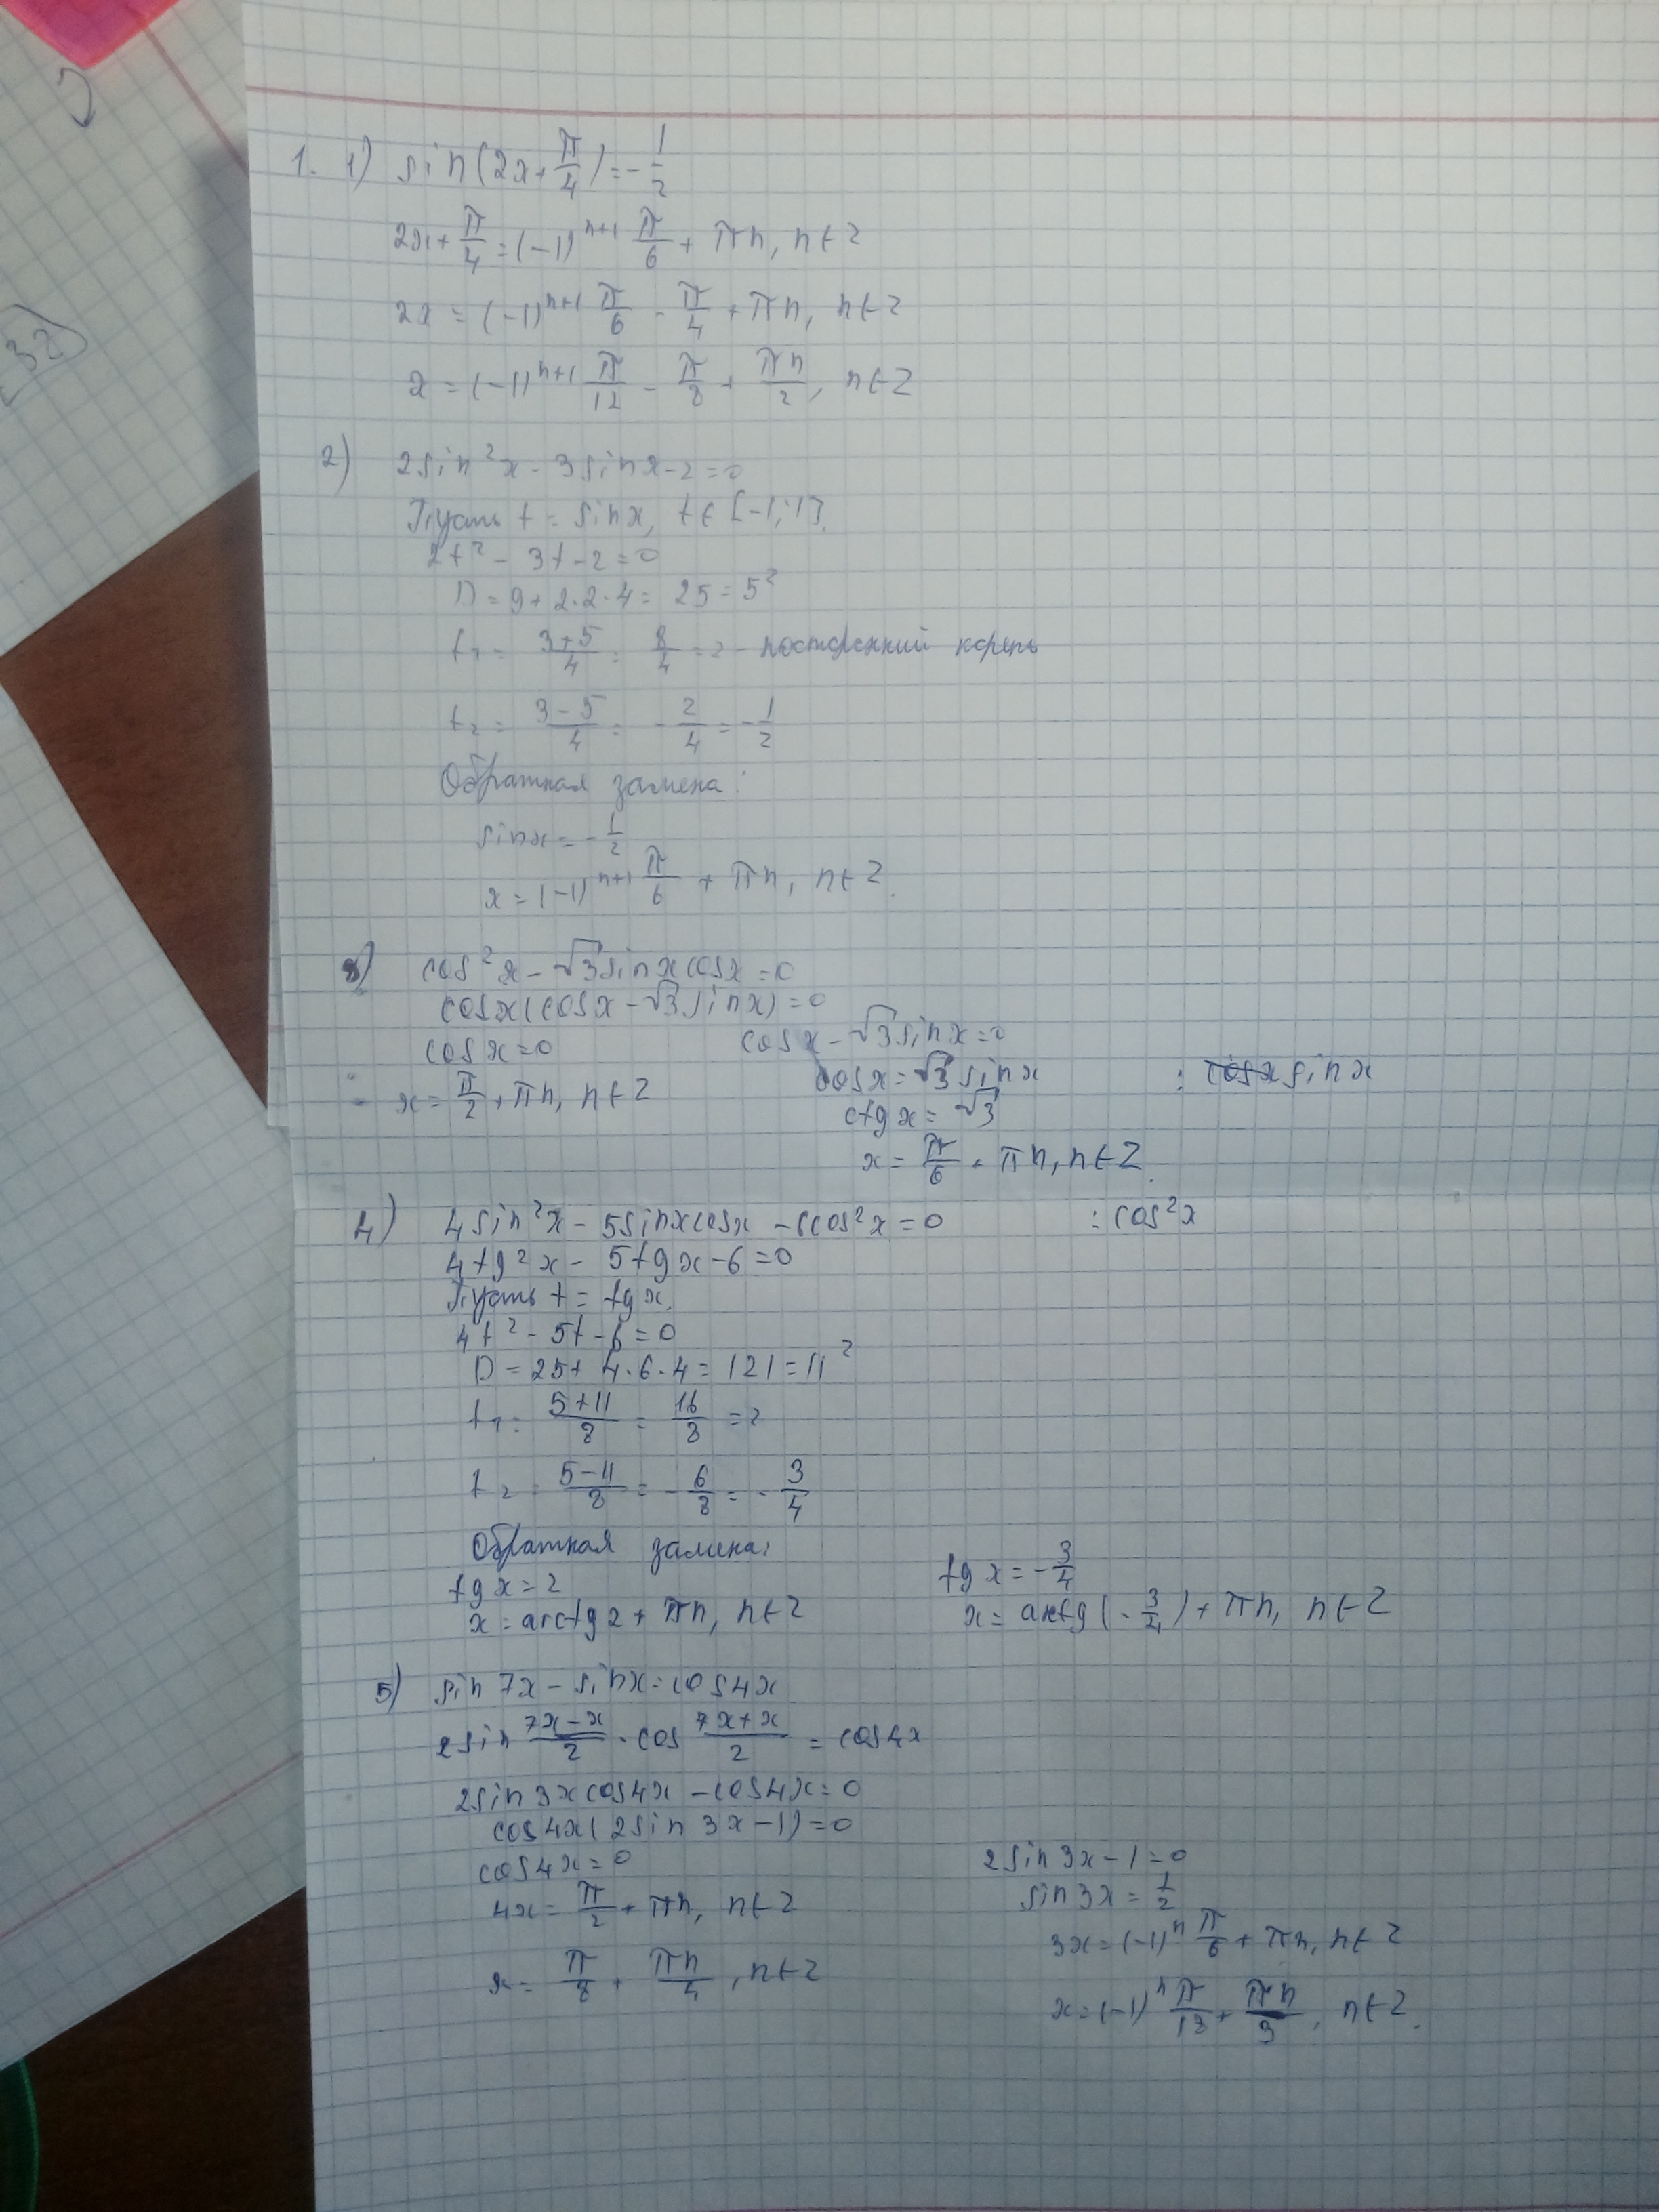 1. 1) sin(2x+π/4)=-1/2
2x+π/4=(-1)^(n+1) π/6+πn, n∈Z
2x=(-1)^(n+1) π/6-π/4+πn, n∈Z
x=(-1)^(n+1) π/12-π/8+πn/2, n∈Z
2) 2sin²x-3sinx-2=0
Пусть t=sinx, t∈[-1;1].
2t²-3t-2=0
D=9+2·2·4=25=5²
t₁=(3+5)/4=8/4=2-посторонний корень
t₂=(3-5)/4=-2/4=-1/2
Обратная замена:
sinx=-1/2
x=(-1)^(n+1) π/6+πn, n∈Z.
3) cos²x-√3sinxcosx=0
cosx(cosx-√3sinx)=0
cosx=0 cosx-√3sinx=0
cosx=√3sinx :sinx
x=π/2+πn, n∈Z ctgx=√3
x=π/6+πn, n∈Z.
4) 4sin²x-5sinxcosx-6cos²x=0 :cos²x
4tg²x-5tgx-6=0
Пусть t=tgx.
4t²-5t-6=0
D=25+4·6·4=121=11²
t₁=(5+11)/8=16/8=2
t₂=(5-11)/8=-6/8=-3/4
Обратная замена:
tgx=2 tgx=-3/4
x=arctg2+πn, n∈Z x=arctg(-3/4)+πn, n∈Z
5) sin7x-sinx=cos4x
2sin (7x-x)/2·cos (7x+x)/2=cos4x
2sin3xcos4x-cos4x=0
cos4x(2sin3x-1)=0
cos4x=0 2sin3x-1=0
sin3x=1/2
4x=π/2+πn, n∈Z 3x=(-1)^n π/6+πn, n∈Z
x=π/8+πn/4, n∈Z x=(-1)^n π/18+πn/3, n∈Z.